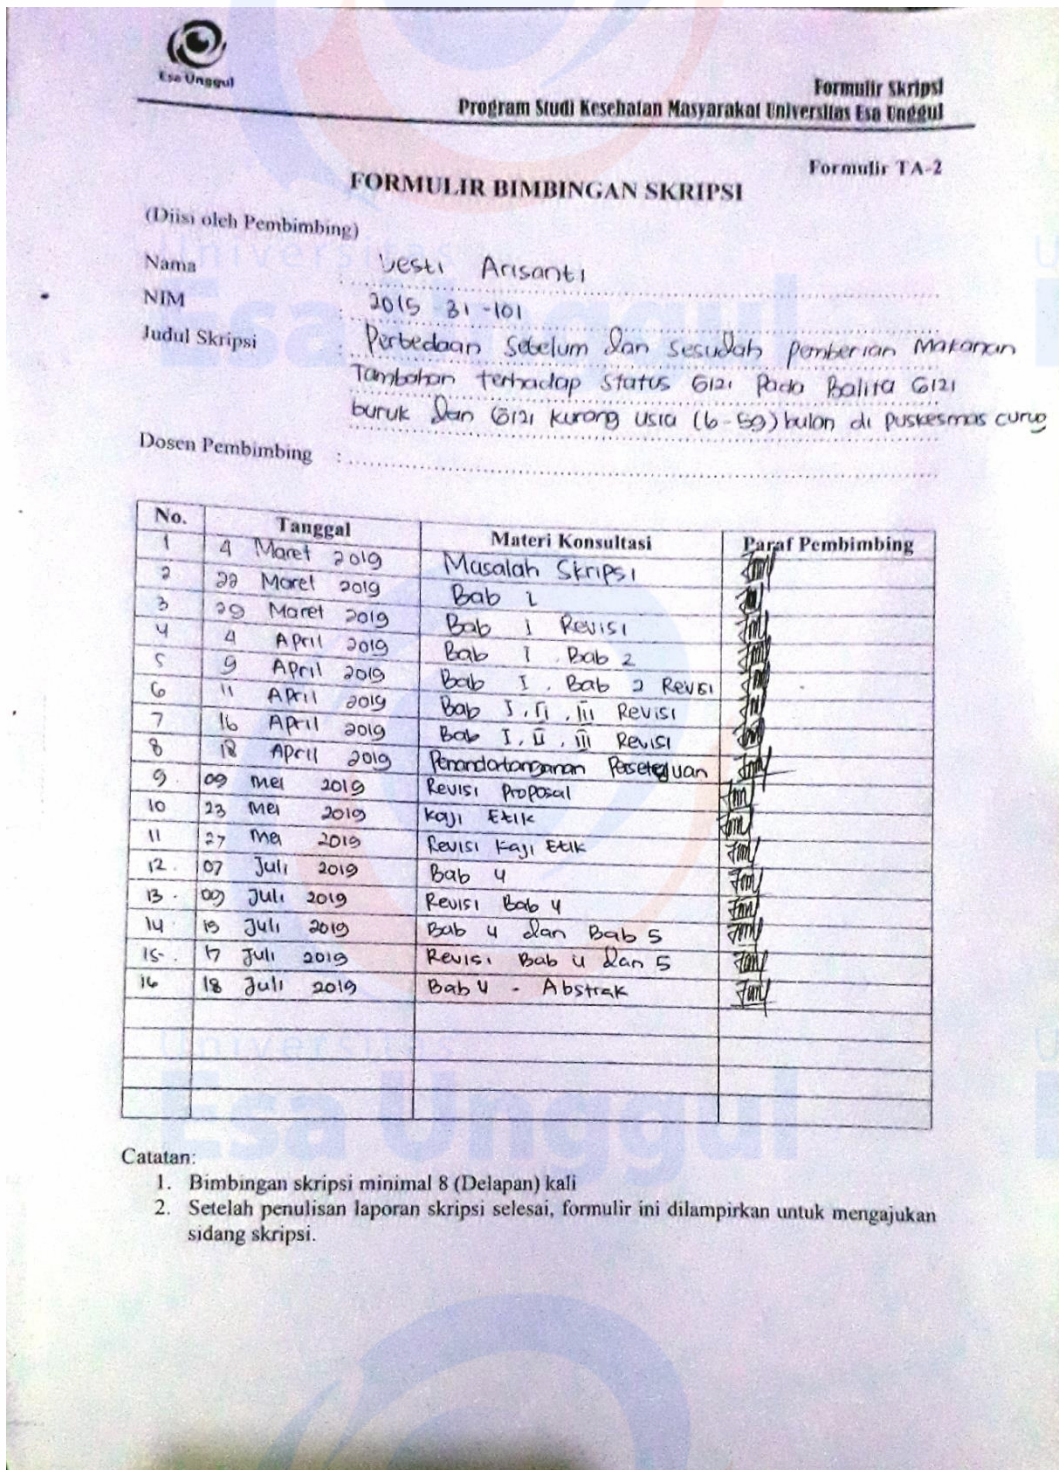 Esa Unggul
Formulir Skripsi
Program Studi Kesehatan Masyarakat Universitas Esa Unggul
Formulir TA-2
FORMULIR BIMBINGAN SKRIPSI
(Diisi oleh Pembimbing)
Nama : Arisanti
NIM : 2015 31 -101
Judul Skripsi : Perbedaan Sebelum dan Sesudah Pemberian Makanan
Tambahan terhadap Status Gizi Pada Balita Gizi
buruk dan Gizi kurang usia (6-59) bulan di puskesmas curug
Dosen Pembimbing :
No. Tanggal Materi Konsultasi Paraf Pembimbing
1 4 Maret 2019 Masalah Skripsi
2 22 Maret 2019 Bab 1
3 29 Maret 2019 Bab I Revisi
4 4 April 2019 Bab I . Bab 2
5 9 April 2019 Bab I . Bab 2 Revisi
6 11 April 2019 Bab I , II , III Revisi
7 16 April 2019 Bab I , II , III Revisi
8 18 April 2019 Penandatanganan Persetujuan
9 . 09 Mei 2019 Revisi Proposal
10 23 Mei 2019 Kaji Etik
11 27 Mei 2019 Revisi Kaji Etik
12 . 07 Juli 2019 Bab 4
13 . 09 Juli 2019 Revisi Bab 4
14 Juli 2019 Bab 4 dan Bab 5
15 . 17 Juli 2019 Revisi Bab 4 dan 5
16 18 Juli 2019 Bab 4 - Abstrak
Catatan:
1. Bimbingan skripsi minimal 8 (Delapan) kali
2. Setelah penulisan laporan skripsi selesai, formulir ini dilampirkan untuk mengajukan
sidang skripsi.
Universitas
Esa Unggul
Universitas
Esa Unggul